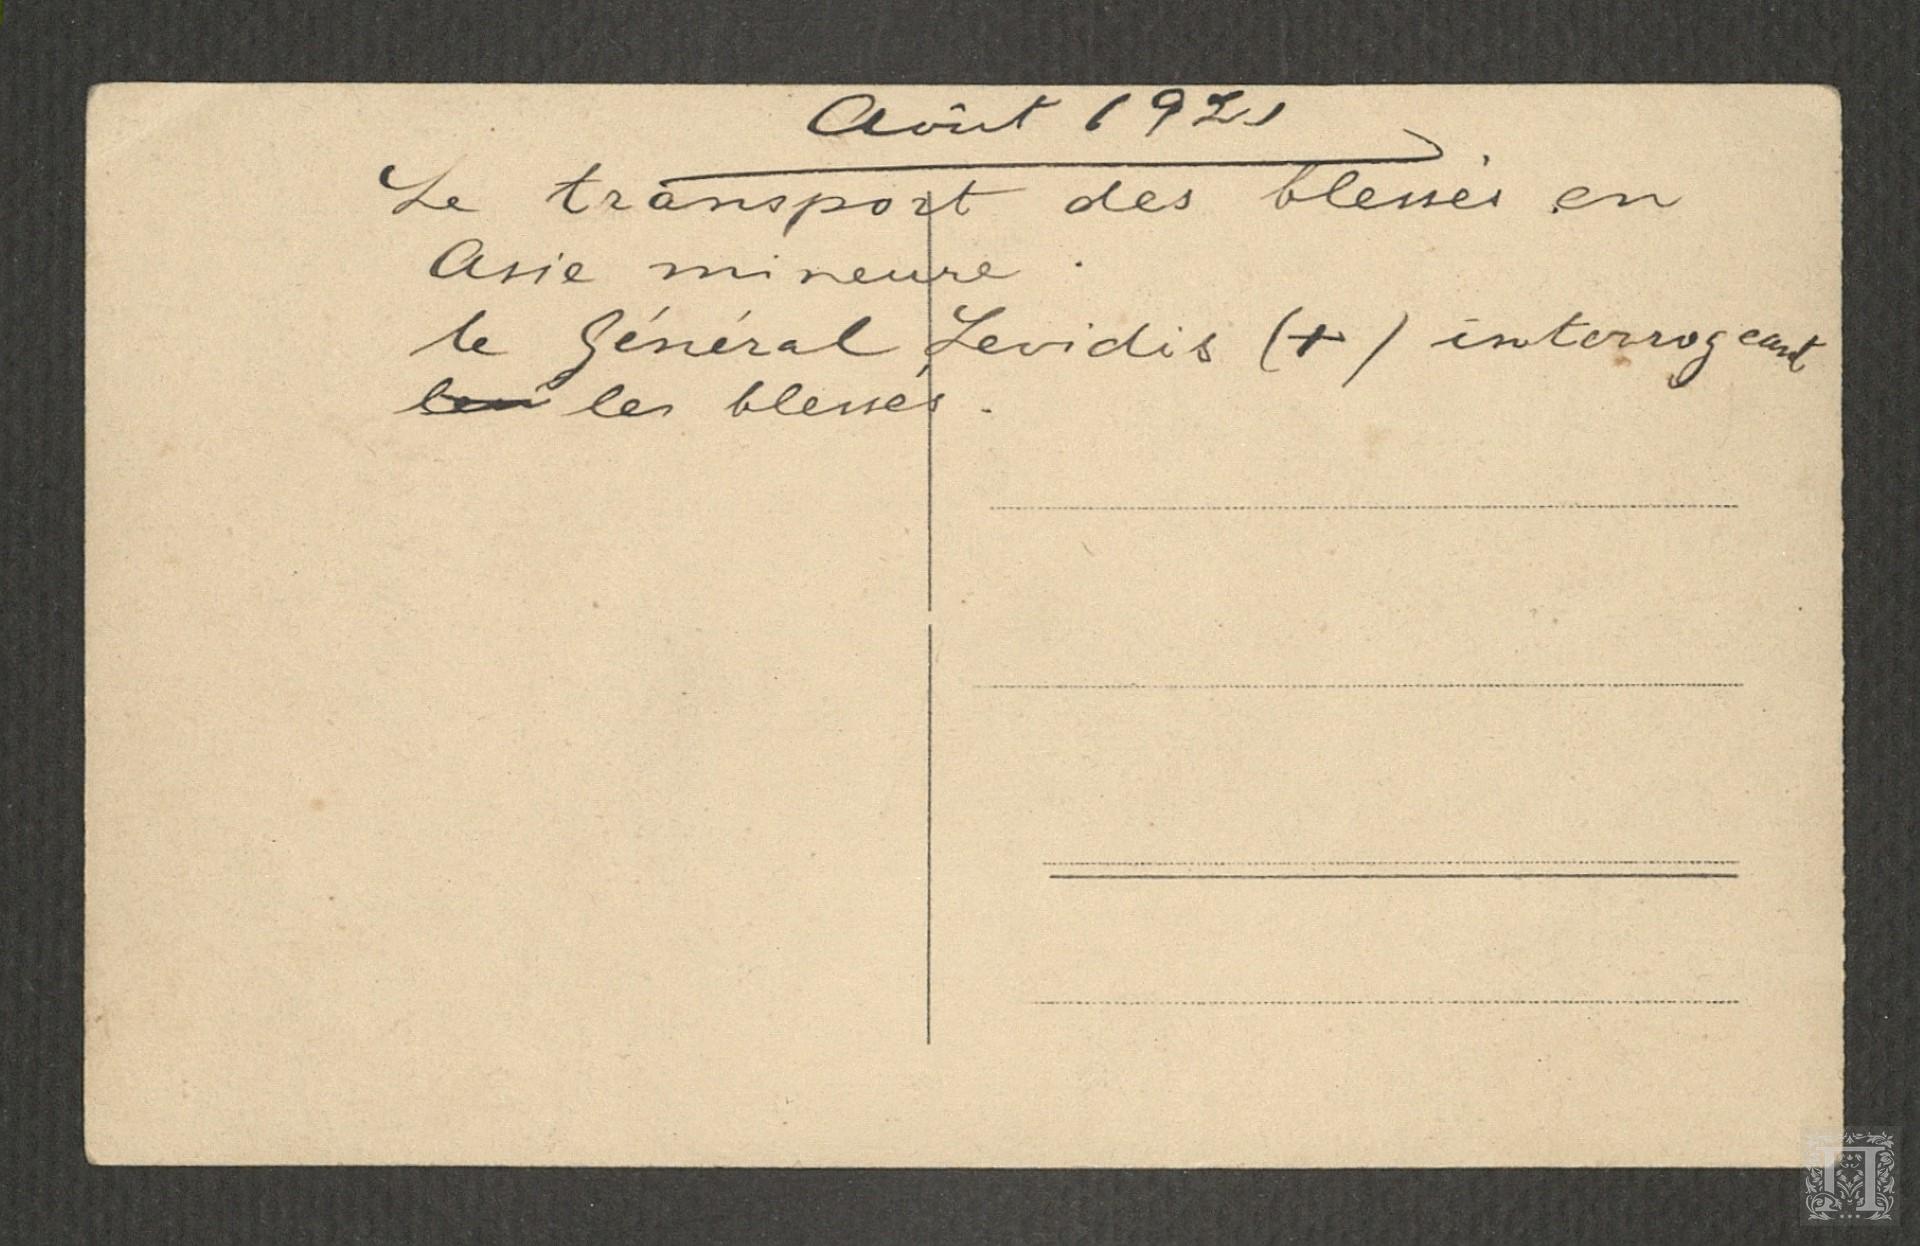 Août 1921
Le transport des blessés en
Asie mineure.
le Général Levidis (+) interrogeant
les blessés.